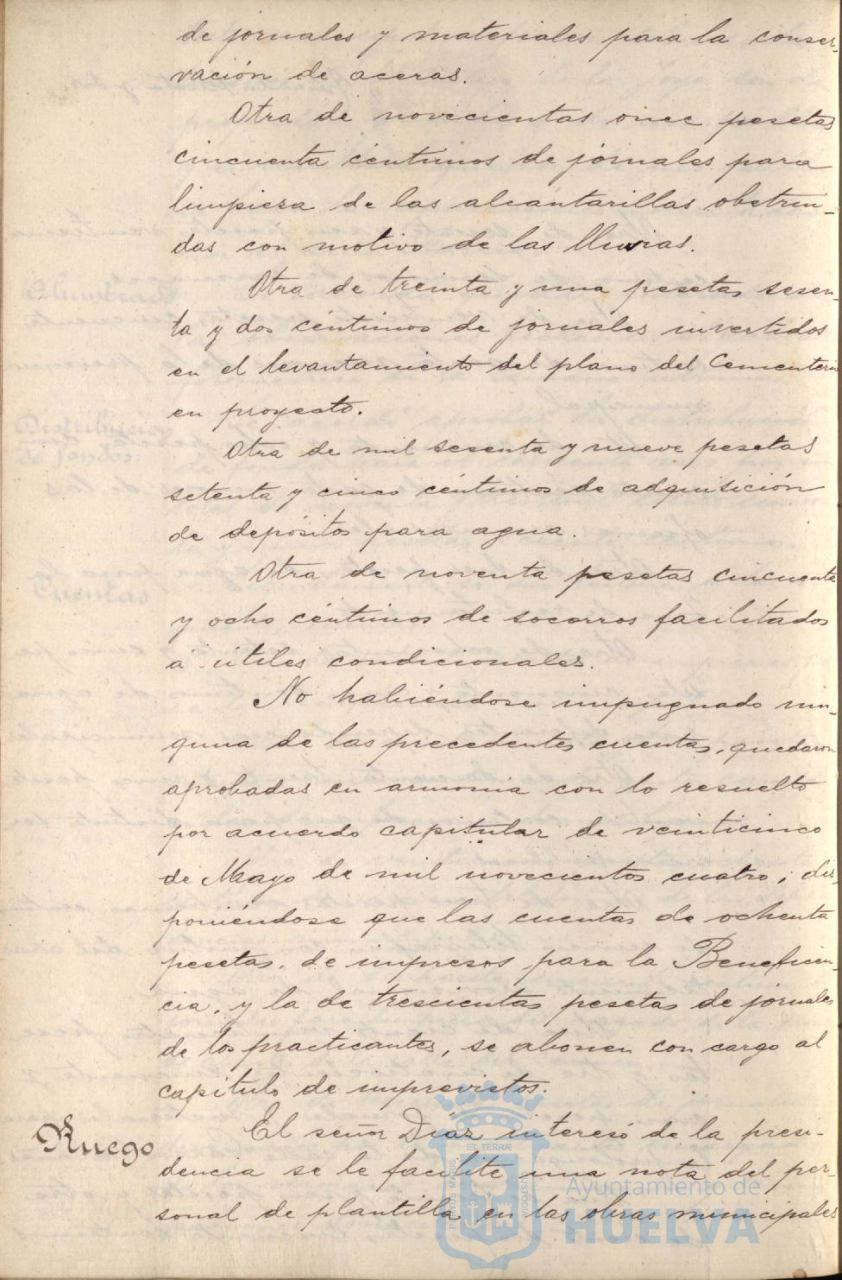 de jornales y materiales para la conser-
vación de aceras.
Otra de novecientas once pesetas
cincuenta céntimos de jornales para
limpieza de las alcantarillas obstrui-
das con motivo de las lluvias.
Otra de treinta y una pesetas sesen-
ta y dos céntimos de jornales invertidos
en el levantamiento del plano del Cementerio
en proyecto.
Otra de mil sesenta y nueve pesetas
setenta y cinco céntimos de adquisición
de depósitos para agua.
Otra de noventa pesetas cincuenta
y ocho céntimos de socorros facilitados
a útiles condicionales.
No habiéndose impugnado nin-
guna de las precedentes cuentas, quedaron
aprobadas en armonia con lo resuelto
por acuerdo capitular de veinticinco
de Mayo de mil novecientos cuatro; dis-
poniéndose que las cuentas de ochenta
pesetas, de impresos para la Beneficen-
cia, y la de trescientas pesetas de jornales
de los practicantes, se abonen con cargo al
capítulo de imprevistos.
Ruego El señor Díaz interesó de la presi-
dencia se le facilite una nota del per-
sonal de plantilla en las obras municipales
Ayuntamiento de
HUELVA